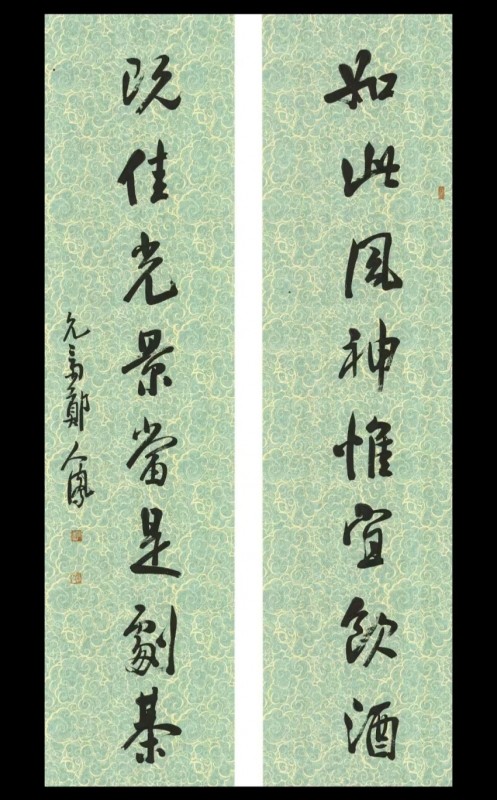 如此風神惟宜飲酒
既佳光景當是劇棊
允 鄭人